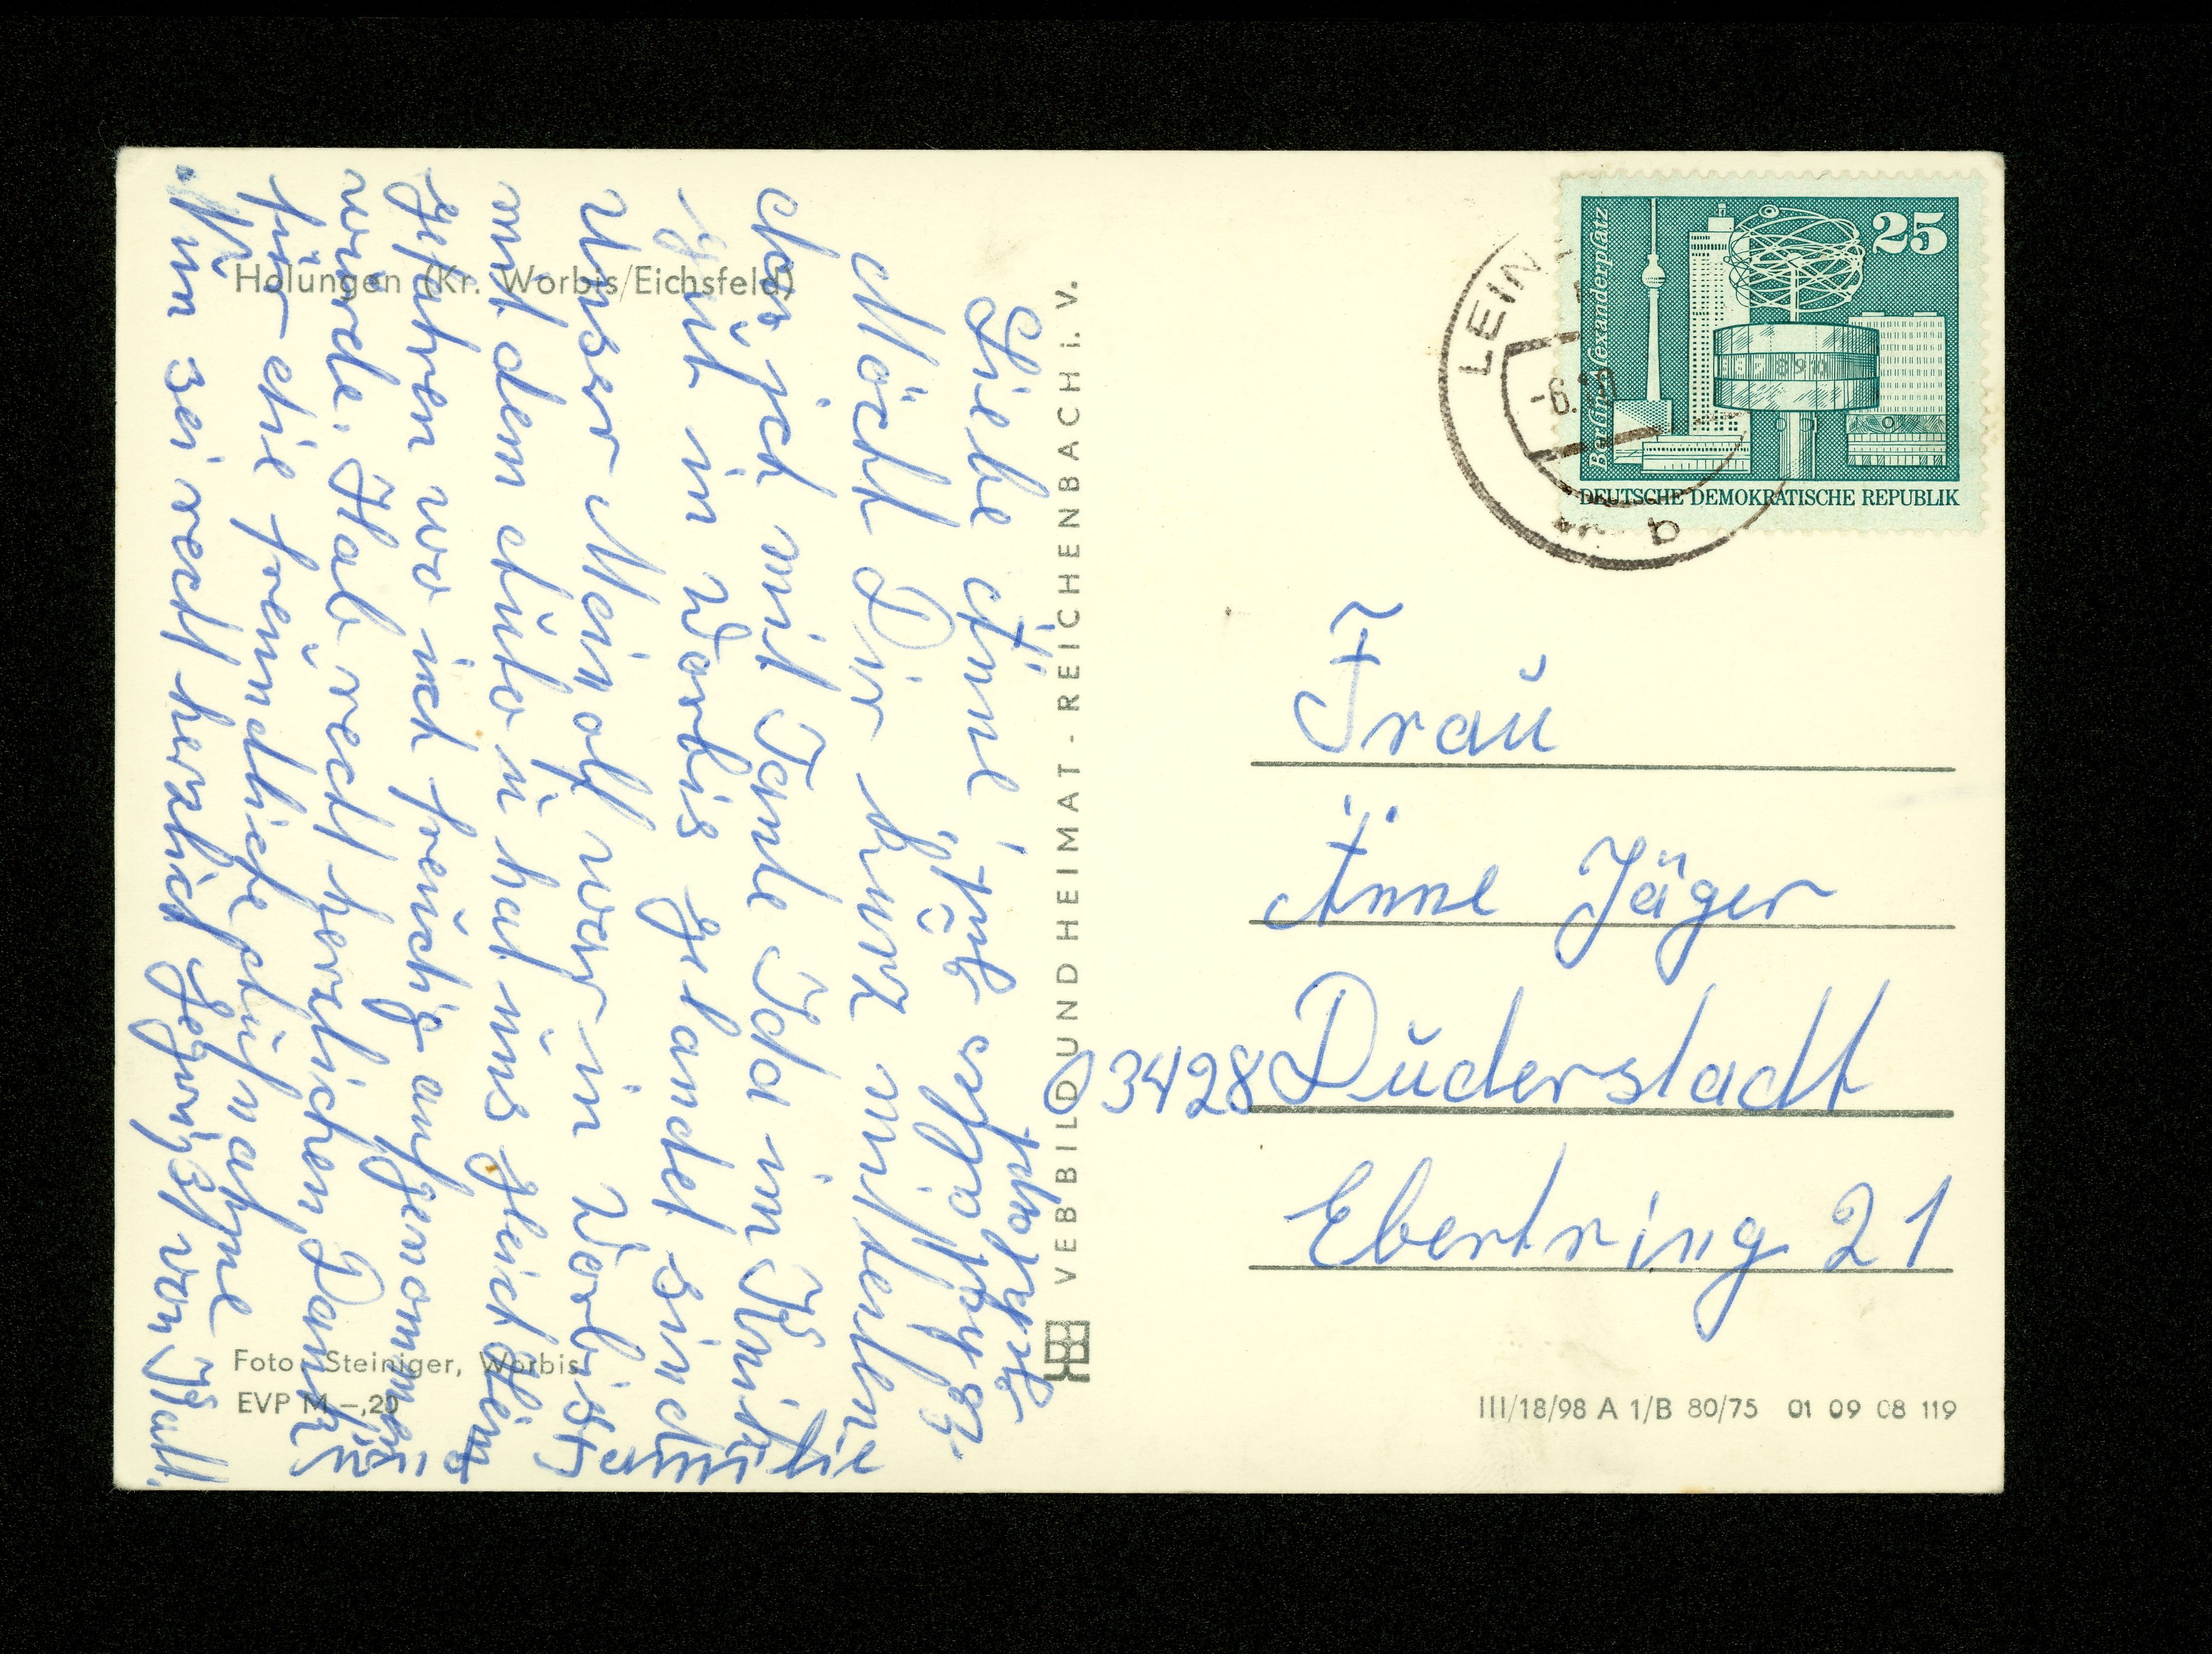 Holungen (Kr. Worbis/Eichsfeld)
Liebe Änne!
Möcht Dir kurz mitteilen
das ich mit Tante Ida im
gut in Worbis gelandet sind
Unser war in Worbis
mit dem Auto u hat uns gleich
gefahren wo ich freudig aufgenommen
wurde. Hab recht herzlichen Dank
für die freundliche Aufnahme
Nun sei recht herzlich gegrüßt von
Familie
Foto: Steiniger, Worbis
EVP M –,20
VEB BILD UND HEIMAT - REICHENBACH i. V.
25
Berlin, Alexanderplatz
DEUTSCHE DEMOKRATISCHE REPUBLIK
LEIN
-6.
b
Frau
Änne Jäger
03428 Duderstadt
Ebertring 21
III/18/98 A 1/B 80/75 01 09 08 119